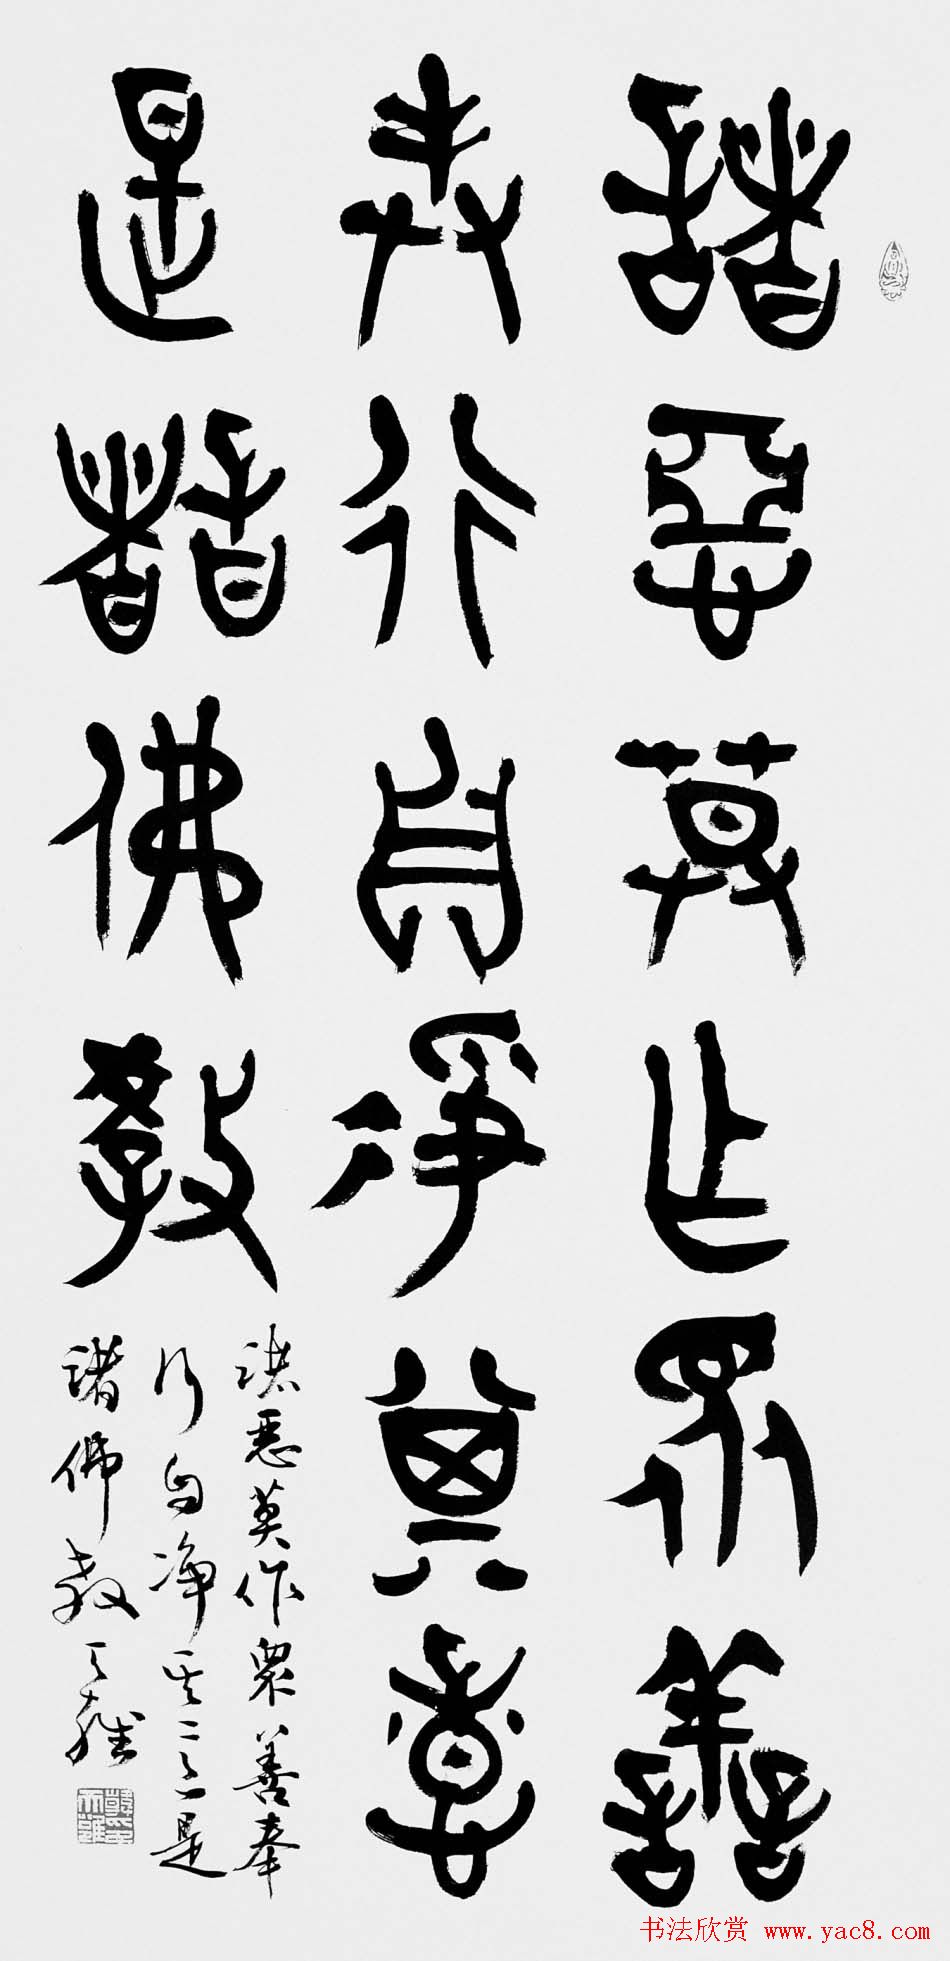 諸惡莫乍眾善
奉行自淨其意
是諸佛教
諸惡莫作眾善奉
行自淨其意是
諸佛教 天雍
书法欣赏 www.yac8.com